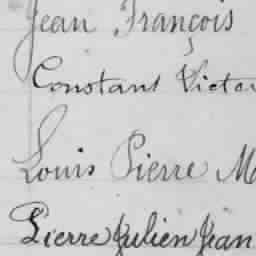 Jean François
Constant Victor
Louis Pierre
Pierre Julien Jean